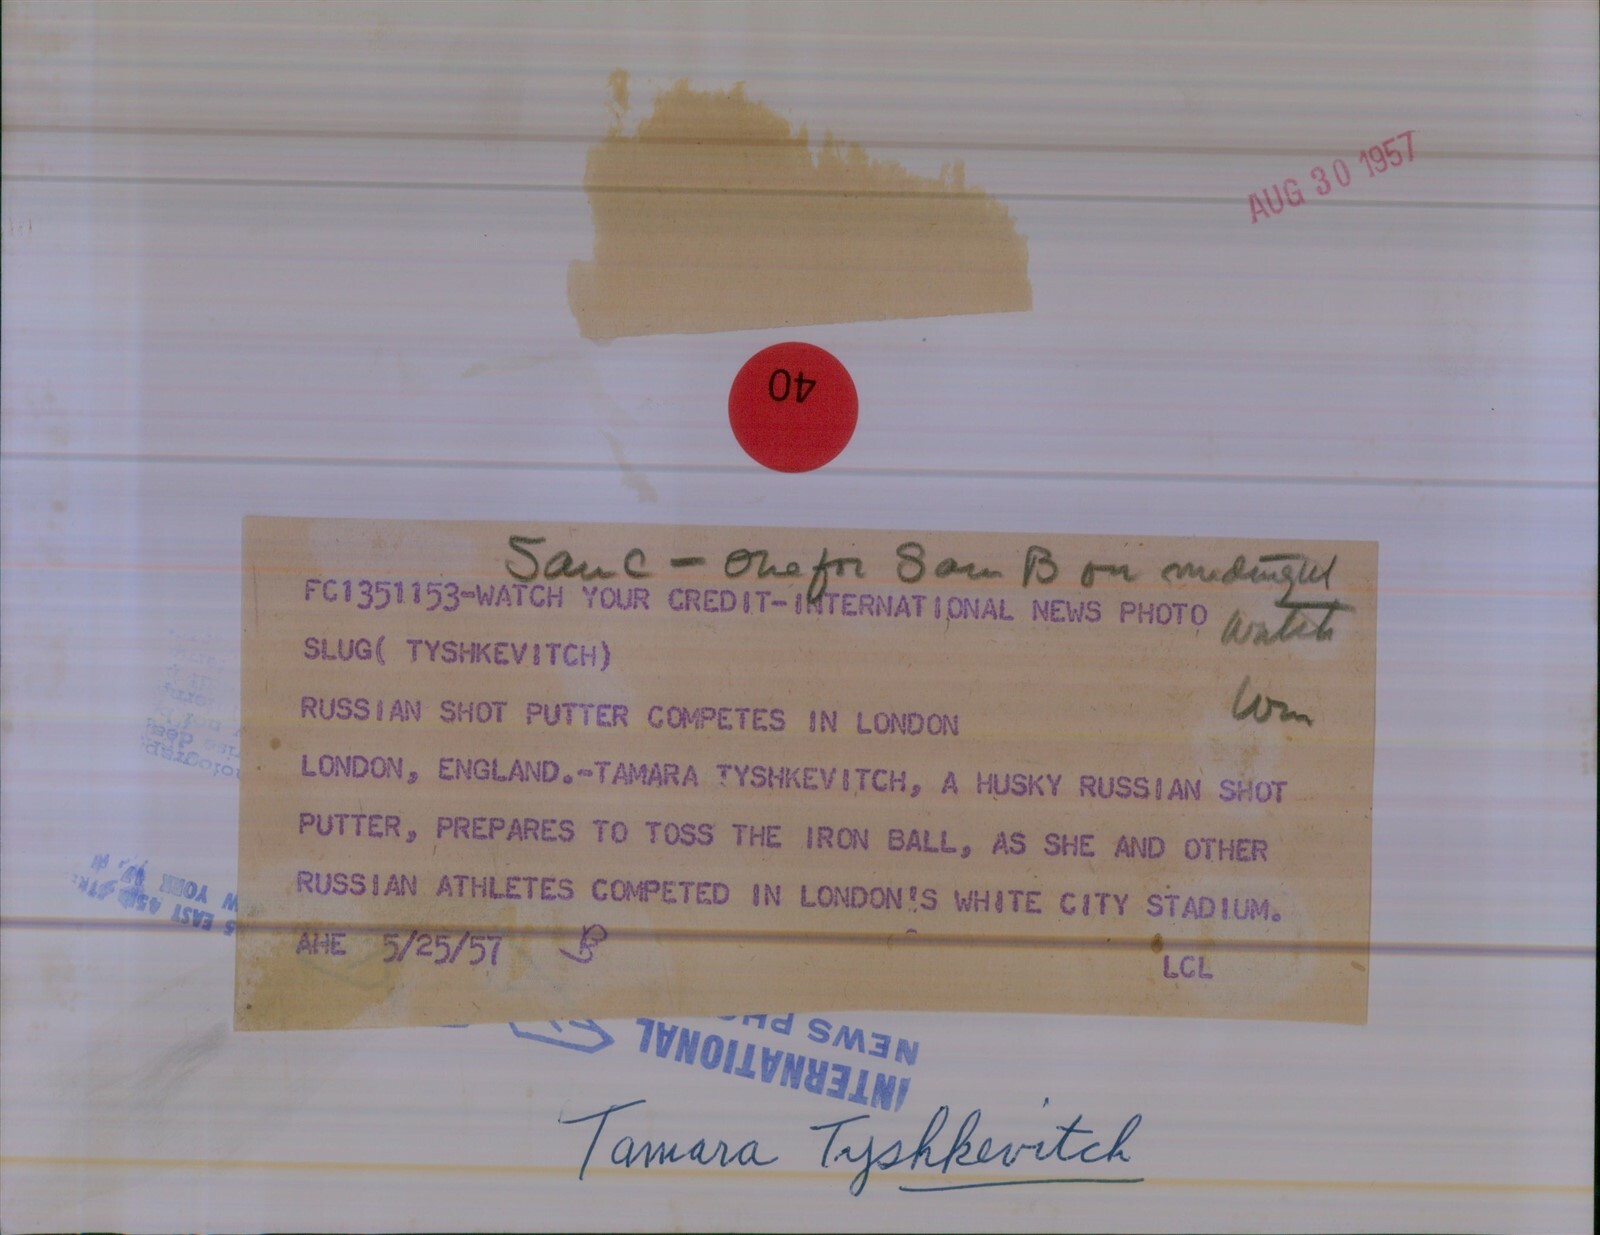 AUG 30 1957
40
Sam C - One for Sam B on midnight
watch
FC1351153-WATCH YOUR CREDIT-INTERNATIONAL NEWS PHOTO
SLUG( TYSHKEVITCH)
RUSSIAN SHOT PUTTER COMPETES IN LONDON
LONDON, ENGLAND.-TAMARA TYSHKEVITCH, A HUSKY RUSSIAN SHOT
PUTTER, PREPARES TO TOSS THE IRON BALL, AS SHE AND OTHER
RUSSIAN ATHLETES COMPETED IN LONDON'S WHITE CITY STADIUM.
AHE 5/25/57
LCL
INTERNATIONAL
NEWS PHO
Tamara Tyshkevitch